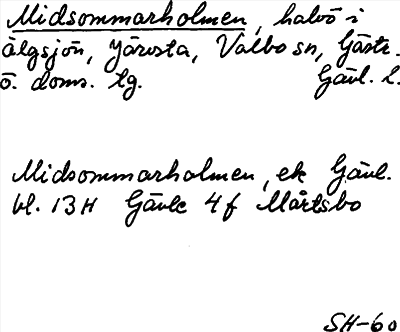 Midsommarholmen, halvö i
Älgsjön, Järvsta, Valbo sn, Gästr.
ö. doms. lg. Gävl. l.
Midsommarholmen, ek Gävl.
bl. 13H Gävle 4f Mårtsbo
SH-60